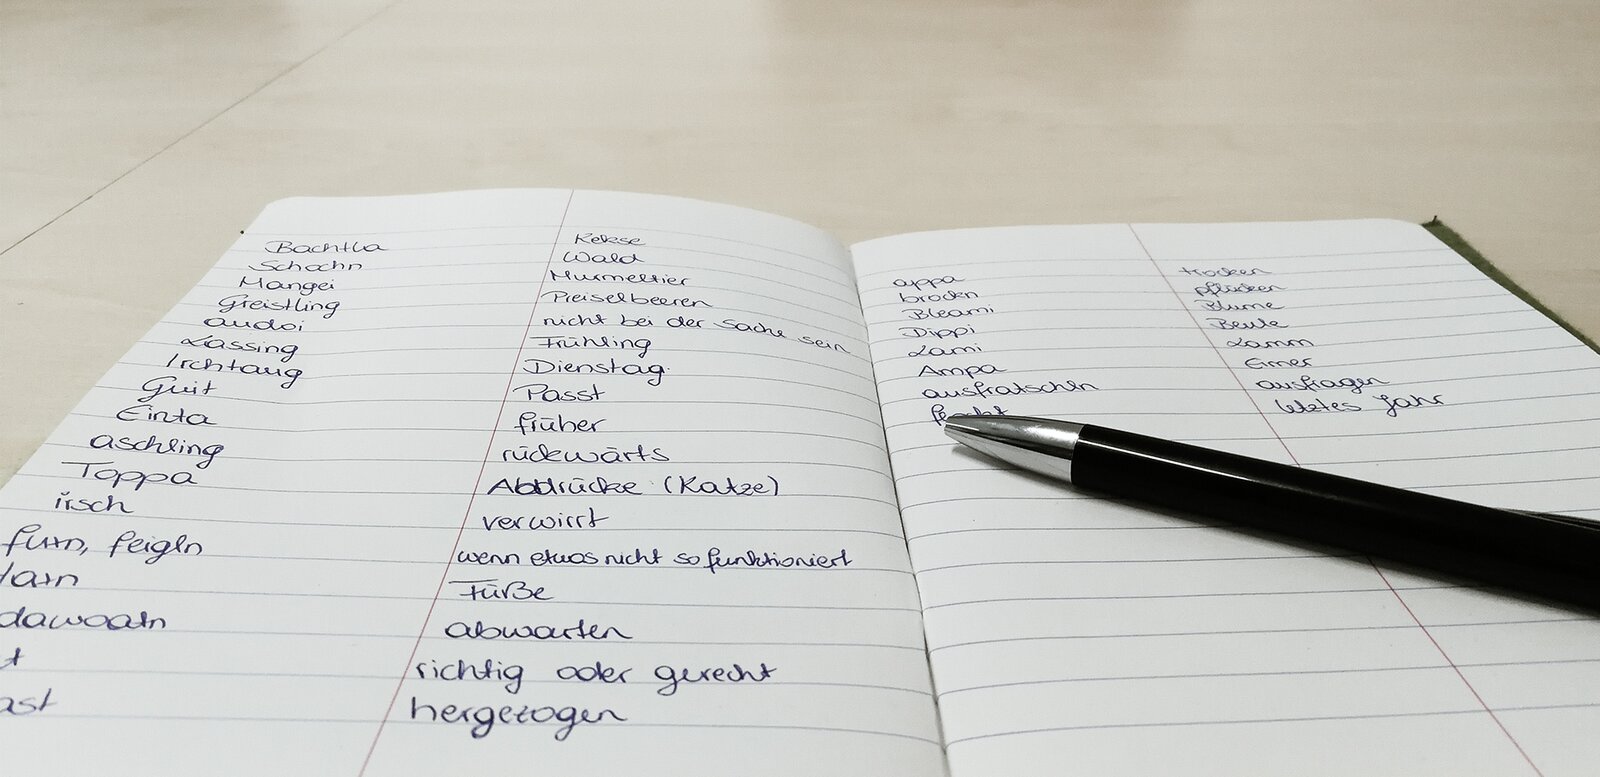 Bachtla Kekse
Schochn Wald
Mangei Murmeltier
Greistling Preiselbeeren
audoi nicht bei der Sache sein
Lassing Frühling
Irchtaug Dienstag
Guit Passt
Einta früher
aschling rückwärts
Toppa Abdrücke (Katze)
irsch verwirrt
feigln wenn etwas nicht so funktioniert
Füße
dawoatn abwarten
richtig oder gerecht
hergezogen
appa trocken
brockn pflücken
Bleami Blume
Dippi Beule
Lami Lamm
Ampa Eimer
ausfratschln ausfragen
letztes Jahr